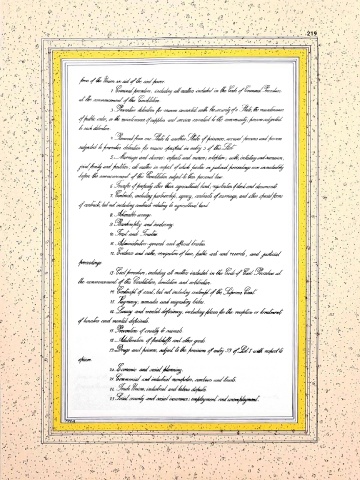 219
form of the Union in aid of the civil power.
2. Criminal procedure, including all matters included in the Code of Criminal Procedure
at the commencement of this Constitution.
3. Preventive detention for reasons connected with the security of a State, the maintenance
of public order, or the maintenance of supplies and services essential to the community; persons subjected
to such detention.
4. Removal from one State to another State of prisoners, accused persons and persons
subjected to preventive detention for reasons specified in entry 3 of this List.
5. Marriage and divorce; infants and minors; adoption; wills, intestacy and succession;
joint family and partition; all matters in respect of which parties in judicial proceedings were immediately
before the commencement of this Constitution subject to their personal law.
6. Transfer of property other than agricultural land; registration of deeds and documents.
7. Contracts, including partnership, agency, contracts of carriage, and other special forms
of contracts, but not including contracts relating to agricultural land.
8. Actionable wrongs.
9. Bankruptcy and insolvency.
10. Trust and Trustees.
11. Administrators-general and official trustees.
12. Evidence and oaths; recognition of laws, public acts and records, and judicial
proceedings.
13. Civil procedure, including all matters included in the Code of Civil Procedure at
the commencement of this Constitution, limitation and arbitration.
14. Contempt of court, but not including contempt of the Supreme Court.
15. Vagrancy; nomadic and migratory tribes.
16. Lunacy and mental deficiency, including places for the reception or treatment
of lunatics and mental deficients.
17. Prevention of cruelty to animals.
18. Adulteration of foodstuffs and other goods.
19. Drugs and poisons, subject to the provisions of entry 59 of List I with respect to
opium.
20. Economic and social planning.
21. Commercial and industrial monopolies, combines and trusts.
22. Trade Unions; industrial and labour disputes.
23. Social security and social insurance; employment and unemployment.